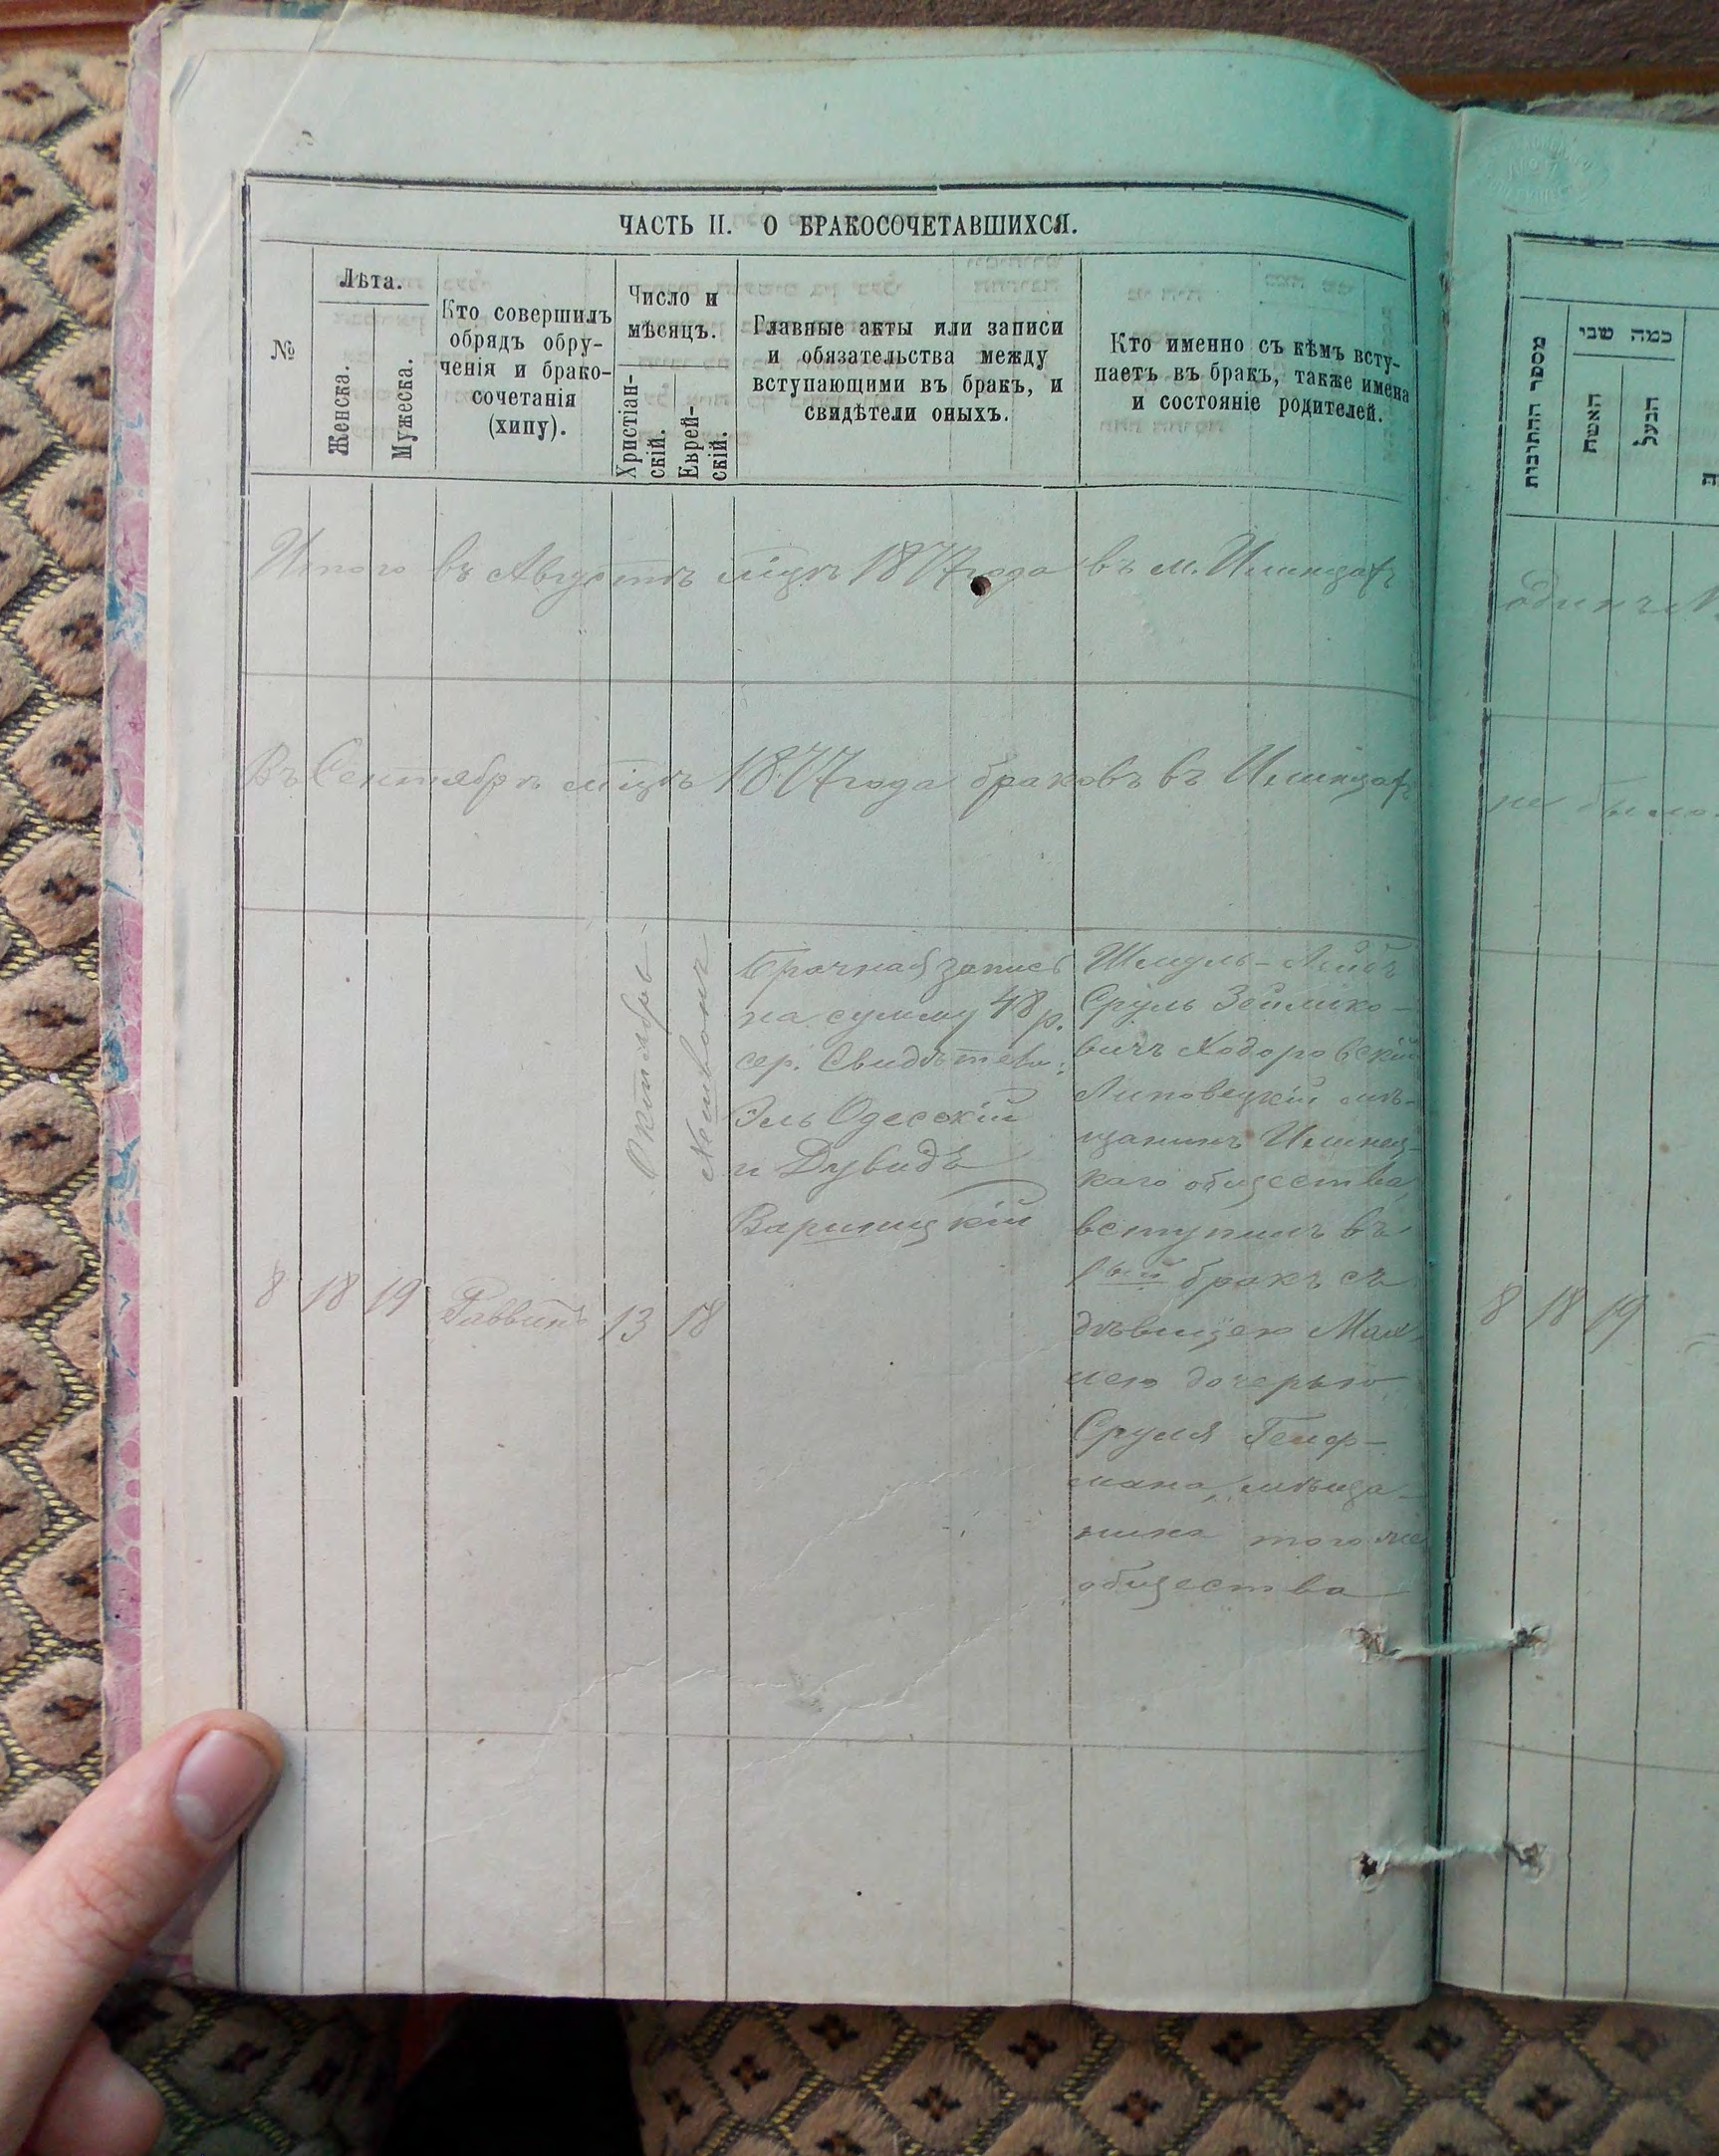 ЧАСТЬ II. О БРАКОСОЧЕТАВШИХСЯ.
№
Лѣта.
Женска.
Мужеска.
Кто совершилъ
обрядъ обру-
ченія и брако-
сочетанія
(хипу).
Число и
мѣсяцъ.
Христіан-
скій.
Еврей-
скій.
Главные акты или записи
и обязательства между
вступающими въ бракъ, и
свидѣтели оныхъ.
Кто именно съ кѣмъ всту-
паетъ въ бракъ, также имена
и состояніе родителей.
Итого въ Августѣ м͞цѣ 1877 года въ м. Илинцахъ
Въ Сентябрѣ м͞цѣ 1877 года браковъ въ Илинцахъ
8
18
19
Раввинъ
Октября
13
18
Брачная запись
на сумму 48 р.
сер. Свидѣтели:
Эль Одескій
и Дувидъ
Вариницкій
Шмуль-Лейбъ
Сруль Зейлико-
вичъ Ходоровскій
Липовецкій мѣ-
щанинъ Илинец-
каго общества,
вступилъ въ
1ый бракъ съ
дѣвицею
дочерью
Сруля Гелф-
мана, мѣща-
нина того же
общества
מספר החתונות
כמה שני
האשה
הבעל
одинъ
не было.
8
18
19